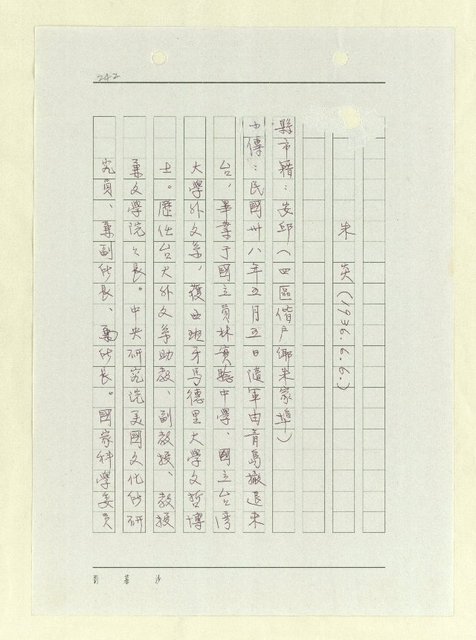 242
朱 炎(1936.6.6.)
縣市籍：安邱(四區偕戶鄉朱家埠)
小傳：民國卅八年五月五日隨軍由青島撤退來
台，畢業于國立員林實驗中學、國立台灣
大學外文系，獲西班牙馬德里大學文哲博
士。歷任台大外文系助教、副教授、教授
兼文學院院長。中央研究院美國文化所研
究員、兼副所長、兼所長。國家科學委員